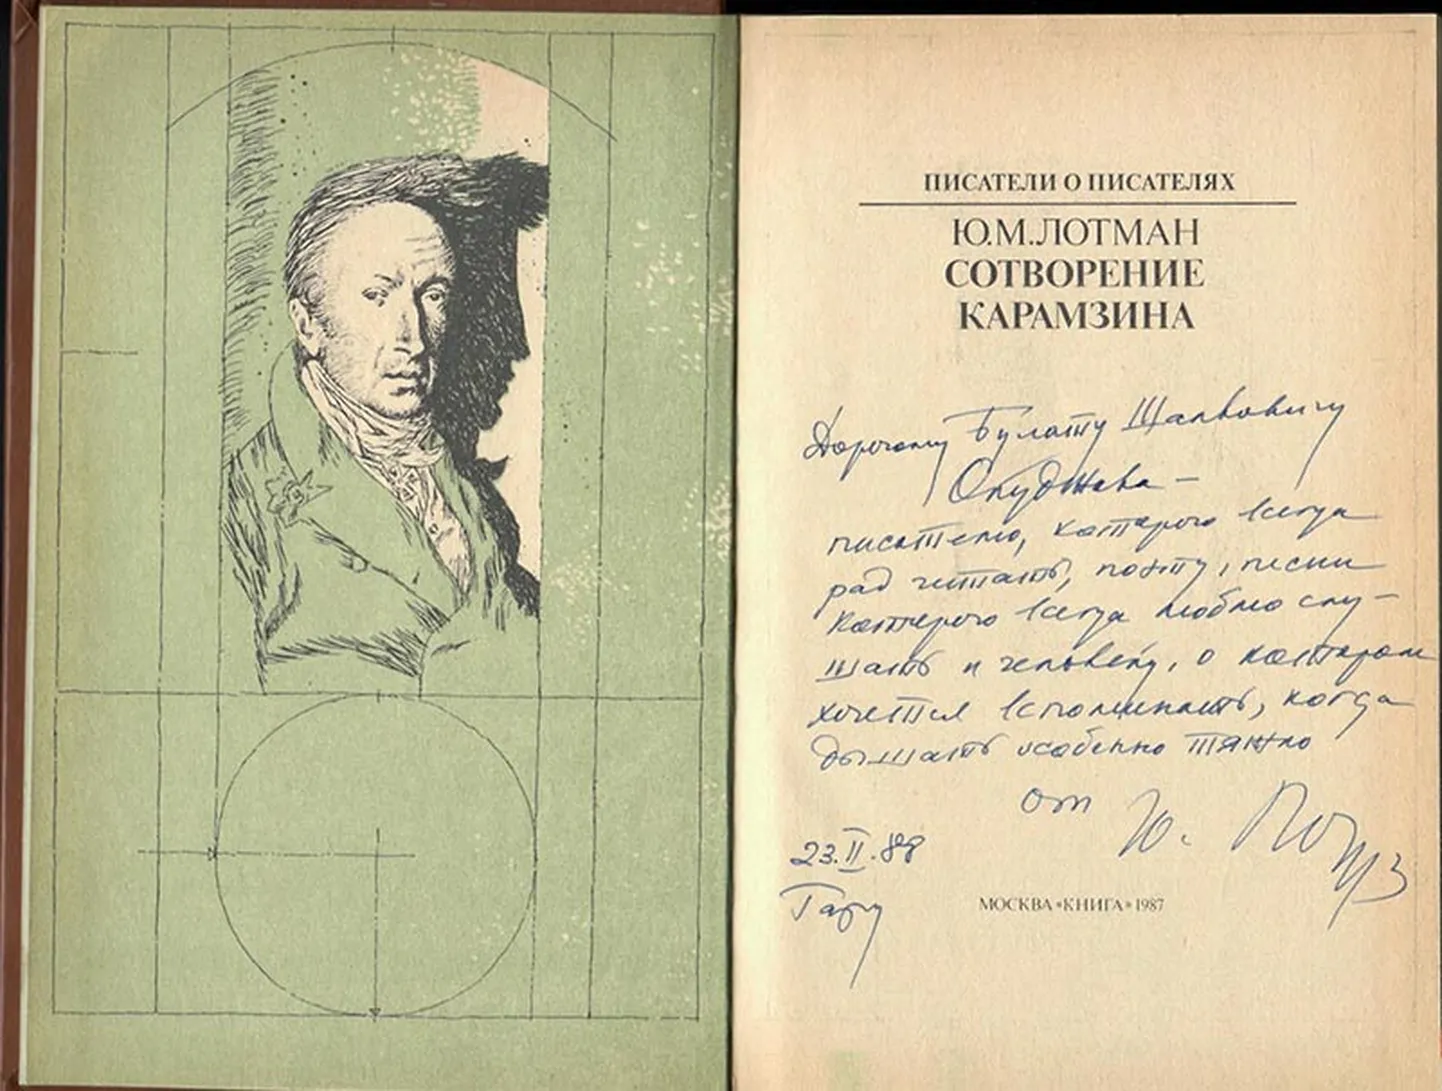 ПИСАТЕЛИ О ПИСАТЕЛЯХ
Ю.М.ЛОТМАН
СОТВОРЕНИЕ
КАРАМЗИНА
Дорогому Булату Шалвовичу
Окуджава –
писателю, которого всегда
рад читать, поэту, песни
которого всегда люблю слу-
шать и человеку, о котором
хочется вспоминать, когда
дышать особенно тяжко
от Ю. Лотм
23.II.88
Тарту
МОСКВА «КНИГА» 1987